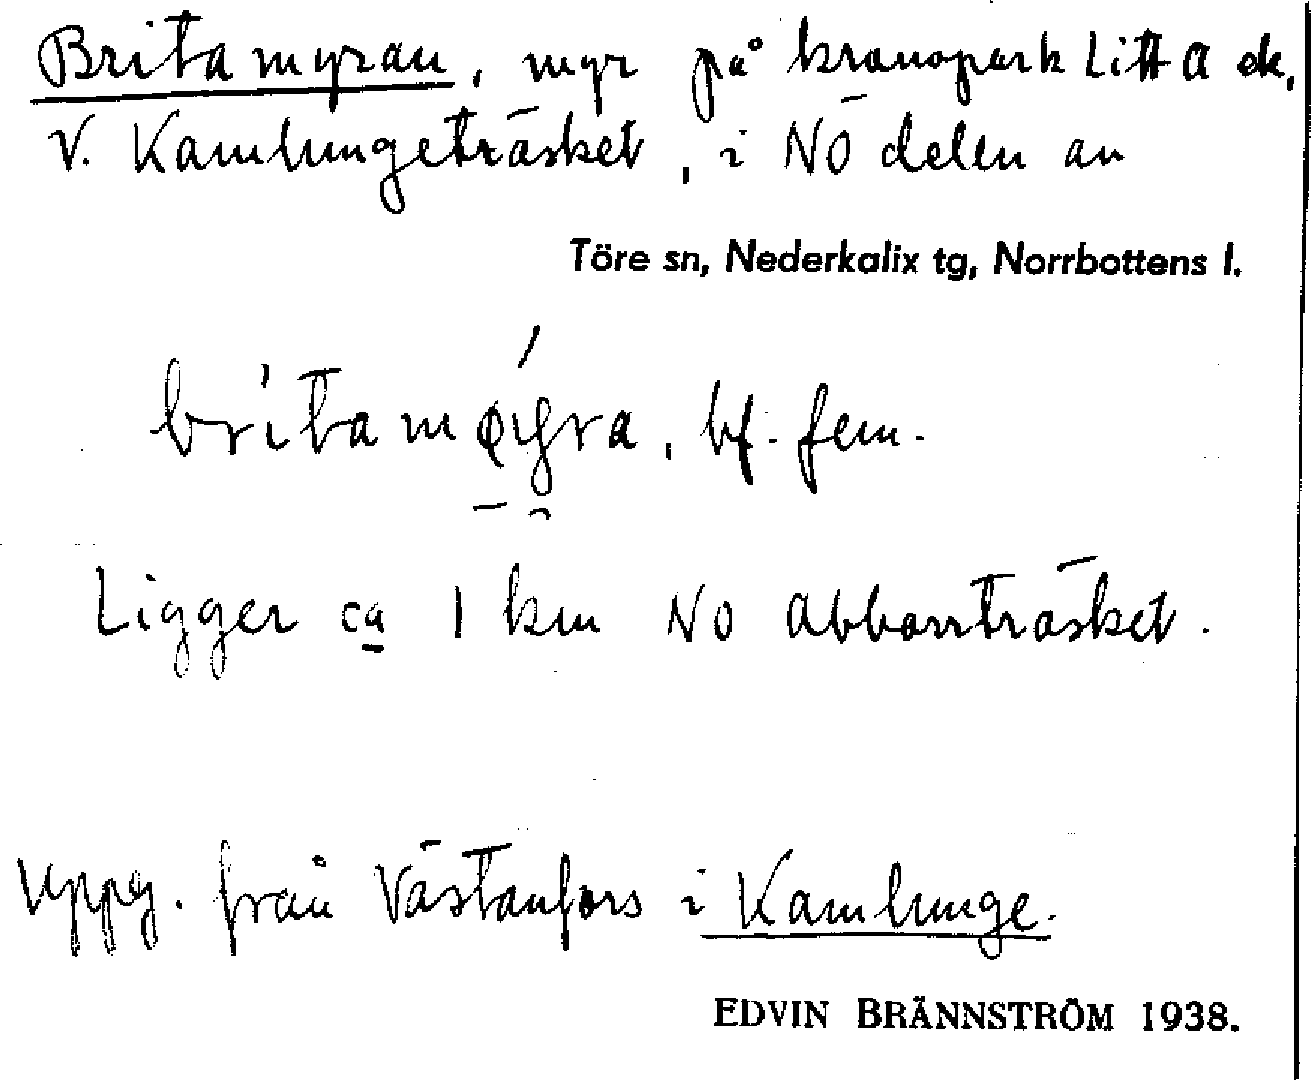 Britamyran, myr på kronopark Litt A ek.
V. Kamlungeträsket, i NÖ delen av
Töre sn, Nederkalix tg, Norrbottens l.
bf. fem.
Ligger ca 1 km NO Abborrträsket.
Uppg. från Västanfors i Kamlunge.
EDVIN BRÄNNSTRÖM 1938.